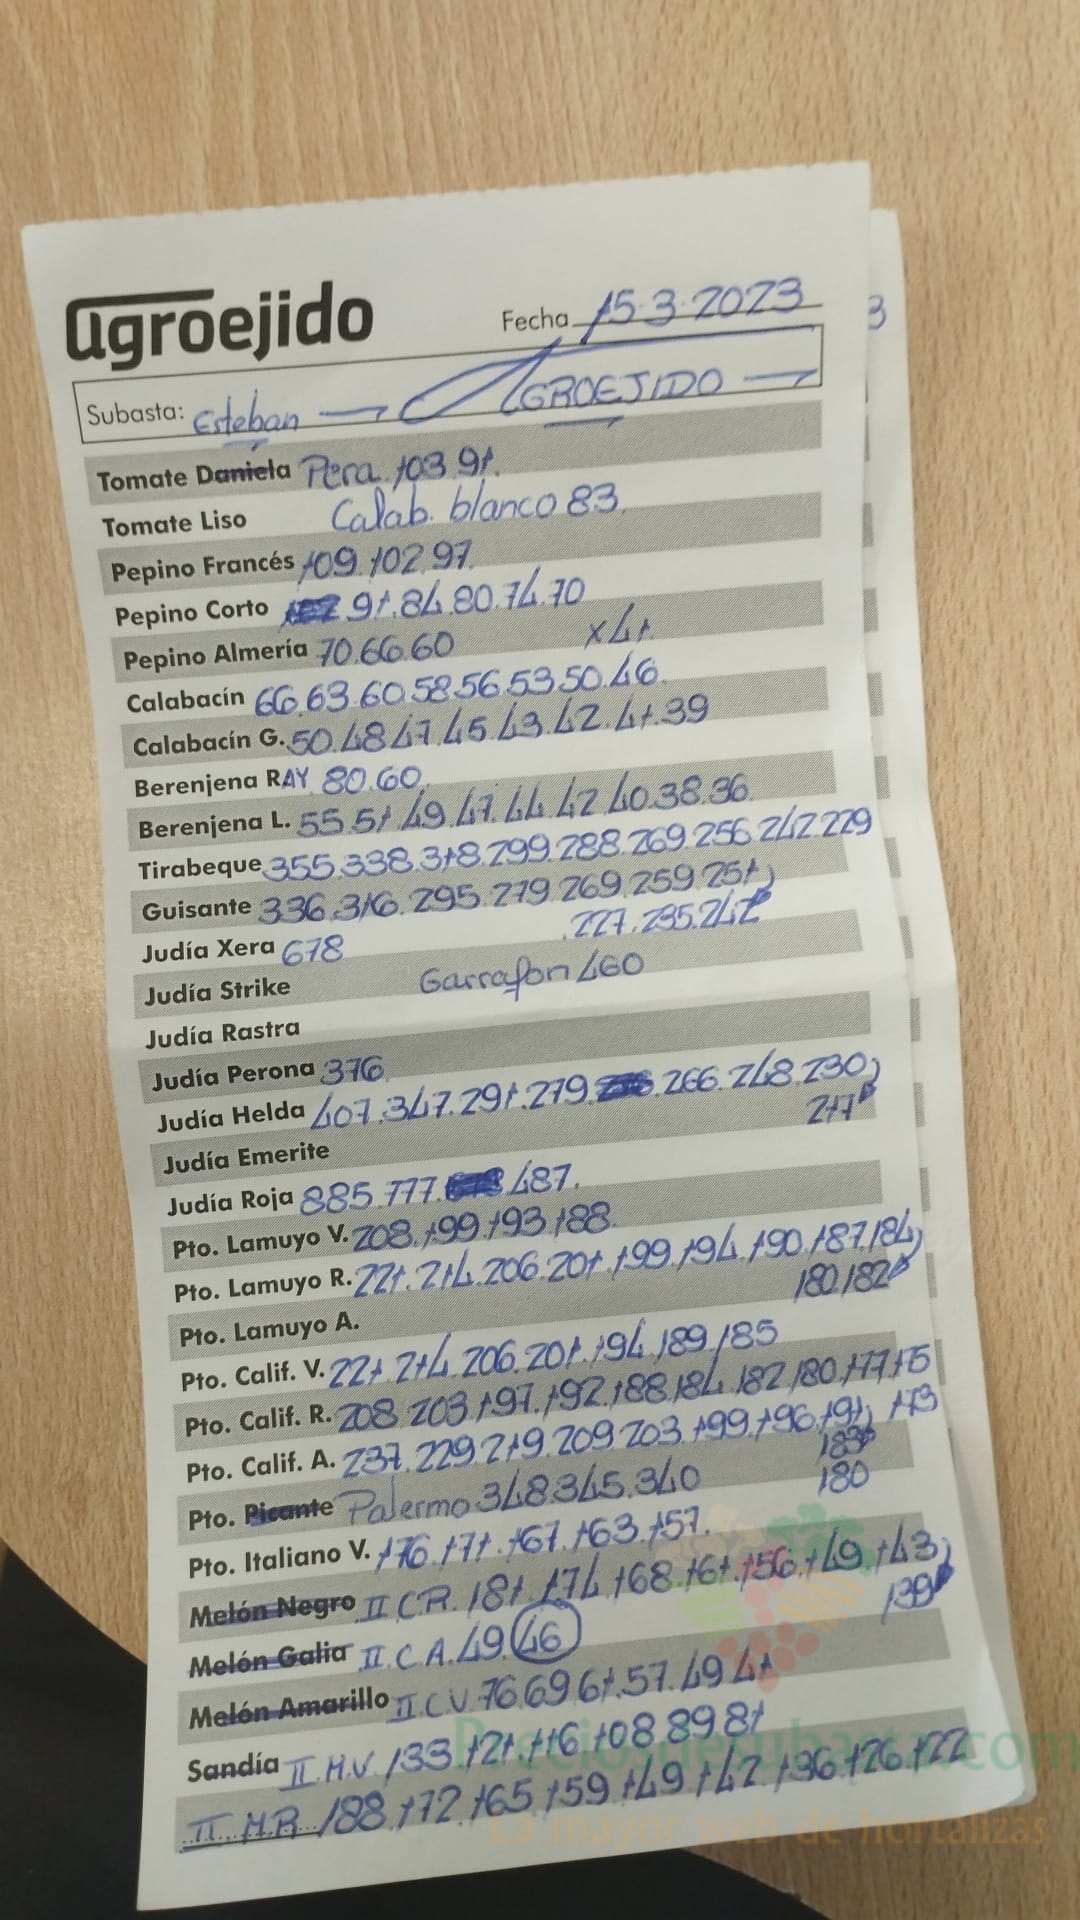 agroejido
Fecha 15-3-2023
3
Subasta: Esteban → AGROEJIDO
Tomate Daniela Pera. 103.91.
Tomate Liso Calab. blanco 83.
Pepino Francés 109.102.97.
Pepino Corto 91.84.80.74.70
Pepino Almería 70.66.60 x41.
Calabacín 66.63.60.58.56.53.50.46.
Calabacín G. 50.48.47.45.43.42.41.39
Berenjena RAY 80.60.
Berenjena L. 55.51.49.47.44.42.40.38.36.
Tirabeque 355.338.318.299.288.269.256.242.229
Guisante 336.316.295.279.269.259.251
.227.235.242
Judía Xera 678
Judía Strike Garrafon 460
Judía Rastra
Judía Perona 376
Judía Helda 407.347.291.279. 266.248.230
217
Judía Emerite
Judía Roja 885.777. 487.
Pto. Lamuyo V. 208.199.193.188.
Pto. Lamuyo R. 221.214.206.201.199.194.190.187.184
180.182
Pto. Lamuyo A.
Pto. Calif. V. 221.214.206.201.194.189.185
Pto. Calif. R. 208.203.197.192.188.184.182.180.177.175
173
Pto. Calif. A. 237.229.219.209.203.199.196.191
183
180
Pto. Picante Palermo 348.345.340
Pto. Italiano V. 176.171.167.163.157.
Melón Negro II C.R. 181.174.168.161.156.149.143
139
Melón Galia II.C.A.49.46
Melón Amarillo II.C.V.76.69.61.57.49.41
Sandía II.M.V. 133.121.116.108.89.81
II.M.R. 188.172.165.159.149.142.136.126.122
Preciosdesubasta.com
La mayor web de hortalizas